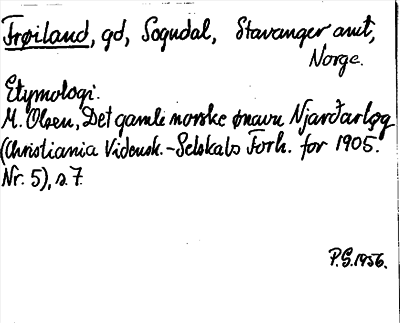 Frøiland, gd, Sogndal, Stavanger amt,
Norge.
Etymologi.
M. Olsen, Det gamle norske ønavn Njarðarløg
(Christiania Vidensk.-Selskabs Forh. for 1905.
Nr. 5), s. 7.
P.G. 1956.